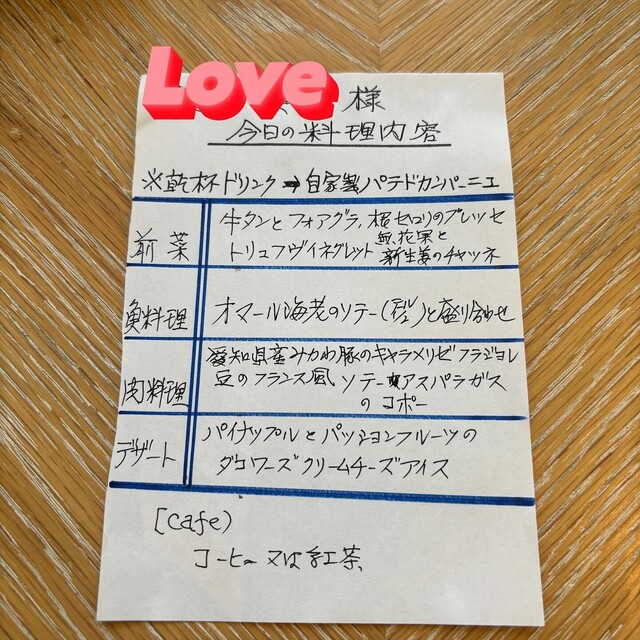 Love
様
今日の料理内容
※乾杯ドリンク→自家製パテドカンパーニュ
前菜
牛タンとフォアグラ、根セロリのプレッセ
無花果と
トリュフヴィネグレット 新生姜のチャツネ
魚料理
オマール海老のソテー()と盛り合わせ
愛知県産みかわ豚のキャラメリゼ フラジョレ
肉料理
豆のフランス風 ソテーアスパラガス
の コポー
デザート
パイナップルとパッションフルーツの
ダコワーズクリームチーズアイス
[Cafe)
コーヒー又は紅茶、